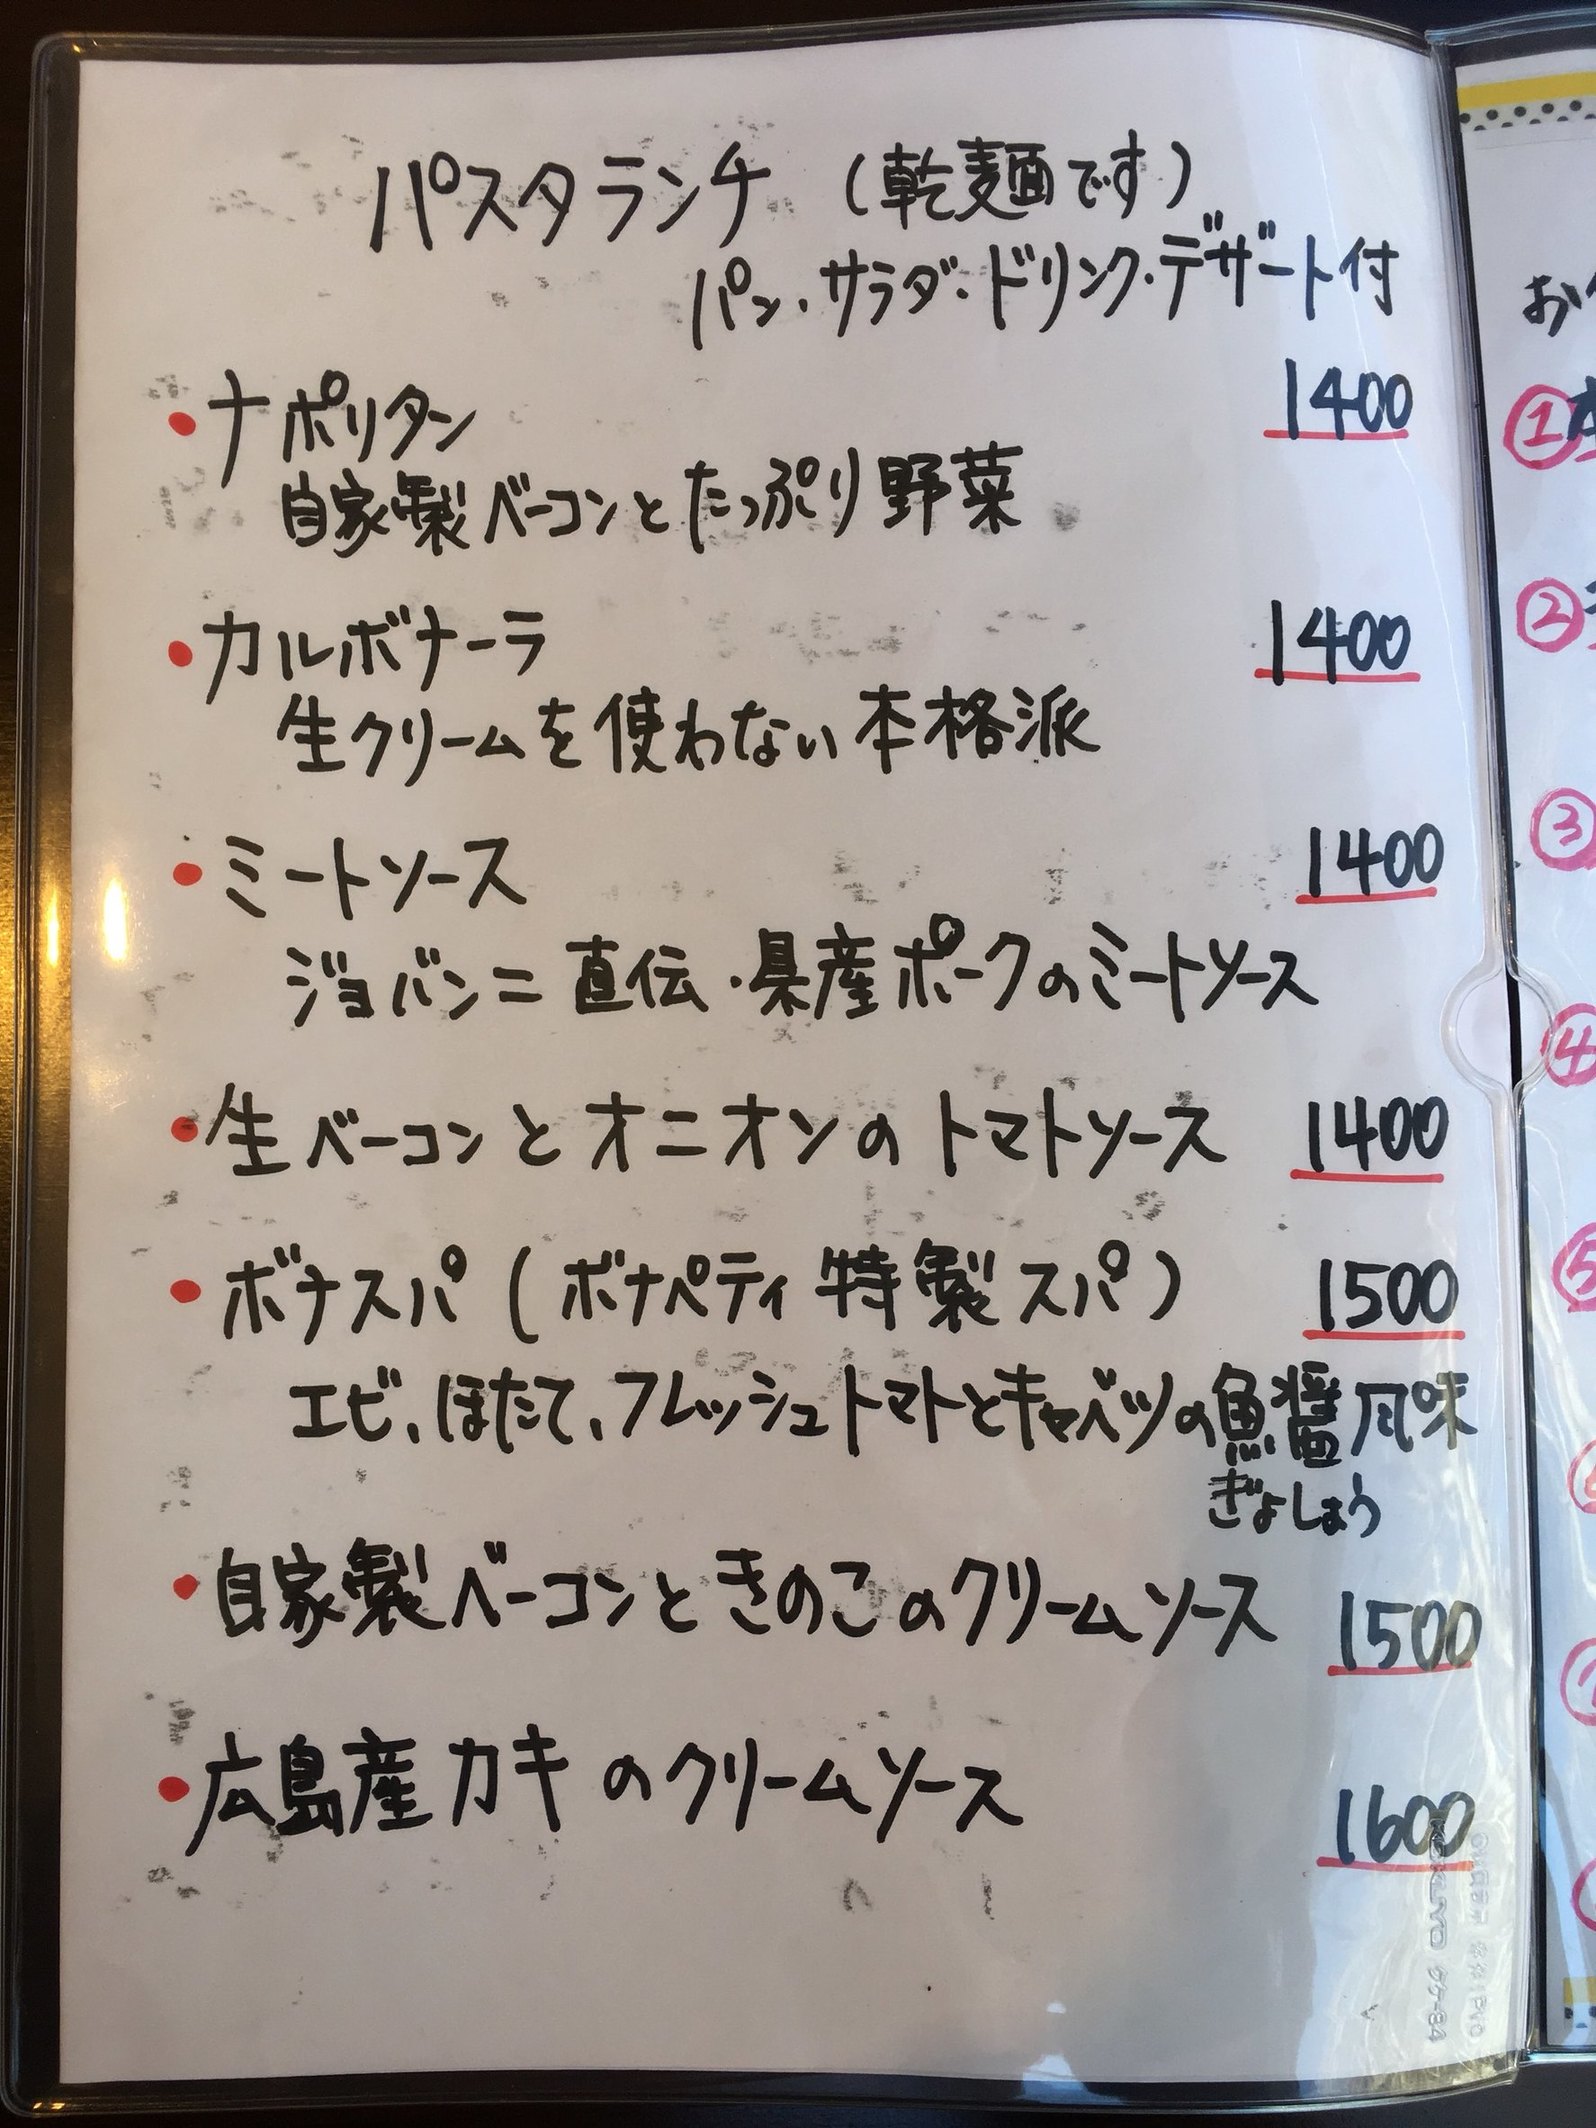 パスタランチ (乾麺です)
パン・サラダ・ドリンク・デザート付
・ナポリタン 1400
自家製ベーコンとたっぷり野菜
・カルボナーラ 1400
生クリームを使わない本格派
・ミートソース 1400
ジョバンニ直伝・県産ポークのミートソース
・生ベーコンとオニオンのトマトソース 1400
・ボナスパ (ボナペティ特製スパ) 1500
エビ、ほたて、フレッシュトマトとキャベツの魚醤風味
ぎょしょう
・自家製ベーコンときのこのクリームソース 1500
・広島産カキのクリームソース 1600
KOKUYO
お
①
②
③
④
⑤